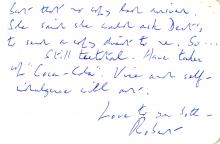 but that no copy had arrived.
She said she would ask Dent's
to send a copy direct to me. So...
Still teetotal. Have taken
to "Coca-Cola". Vice and self-
indulgence will out.
Love to you both -
Robert